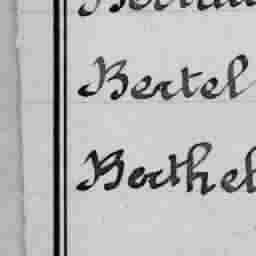 Bertel
Berthel